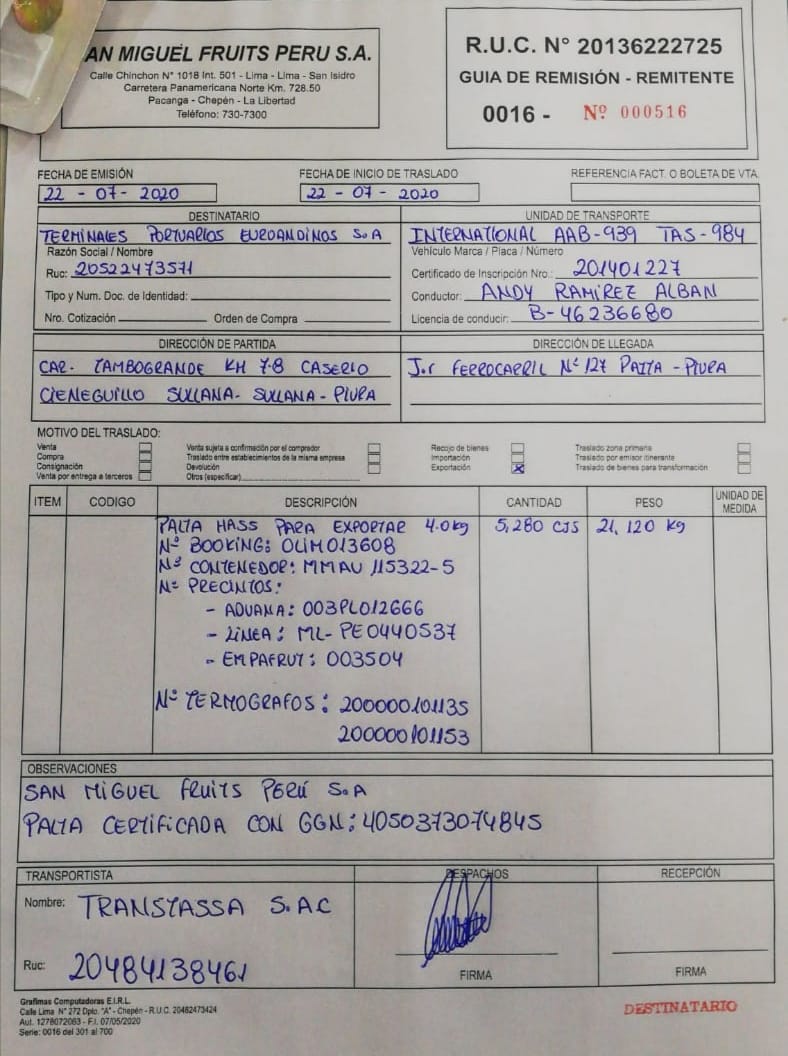 AN MIGUEL FRUITS PERU S.A.
Calle Chinchon N° 1018 Int. 501 - Lima - Lima - San Isidro
Carretera Panamericana Norte Km. 728.50
Pacanga - Chepén - La Libertad
Teléfono: 730-7300
R.U.C. N° 20136222725
GUIA DE REMISIÓN - REMITENTE
0016 - Nº 000516
FECHA DE EMISIÓN
22 - 07 - 2020
FECHA DE INICIO DE TRASLADO
22 - 07 - 2020
REFERENCIA FACT. O BOLETA DE VTA.
DESTINATARIO
TERMINALES PORTUARIOS EUROANDINOS S.A
Razón Social / Nombre
Ruc: 20522473571
Tipo y Num. Doc. de Identidad:
Nro. Cotización Orden de Compra
UNIDAD DE TRANSPORTE
INTERNATIONAL AAB-939 TAS-984
Vehículo Marca / Placa / Número
Certificado de Inscripción Nro.: 201401227
Conductor: ANDY RAMIREZ ALBAN
Licencia de conducir: B-46236680
DIRECCIÓN DE PARTIDA
CAR. TAMBOGRANDE KM 7.8 CASERIO
CIENEGUILLO SULLANA - SULLANA - PIURA
DIRECCIÓN DE LLEGADA
J.r FERROCARRIL Nº 127 PAITA - PIURA
MOTIVO DEL TRASLADO:
Venta
Compra
Consignación
Venta por entrega a terceros
Venta sujeta a confirmación por el comprador
Traslado entre establecimientos de la misma empresa
Devolución
Otros (especificar)
Recojo de bienes
Importación
Exportación X
Traslado zona primaria
Traslado por emisor itinerante
Traslado de bienes para transformación
ITEM CODIGO DESCRIPCIÓN CANTIDAD PESO UNIDAD DE MEDIDA
PALTA HASS PARA EXPORTAR 4.0kg 5,280 CJS 21,120 kg
Nº BOOKING: OLIM013608
Nº CONTENEDOR: MMAU 115322-5
Nº PRECINTOS:
- ADUANA: 003PL012666
- LINEA: ML-PE0440537
- EMPAFRUT: 003504
Nº TERMOGRAFOS: 200000101135
200000101153
OBSERVACIONES
SAN MIGUEL FRUITS PERÚ S.A
PALTA CERTIFICADA CON GGN: 4050373074845
TRANSPORTISTA
Nombre: TRANSTASSA S.A.C
Ruc: 20484138461
DESPACHOS
FIRMA
RECEPCIÓN
FIRMA
Grafimas Computadoras E.I.R.L.
Calle Lima N° 272 Dpto. "A" - Chepén - R.U.C. 20482473424
Aut. 1278072063 - F.I. 07/05/2020
Serie: 0016 del 301 al 700
DESTINATARIO